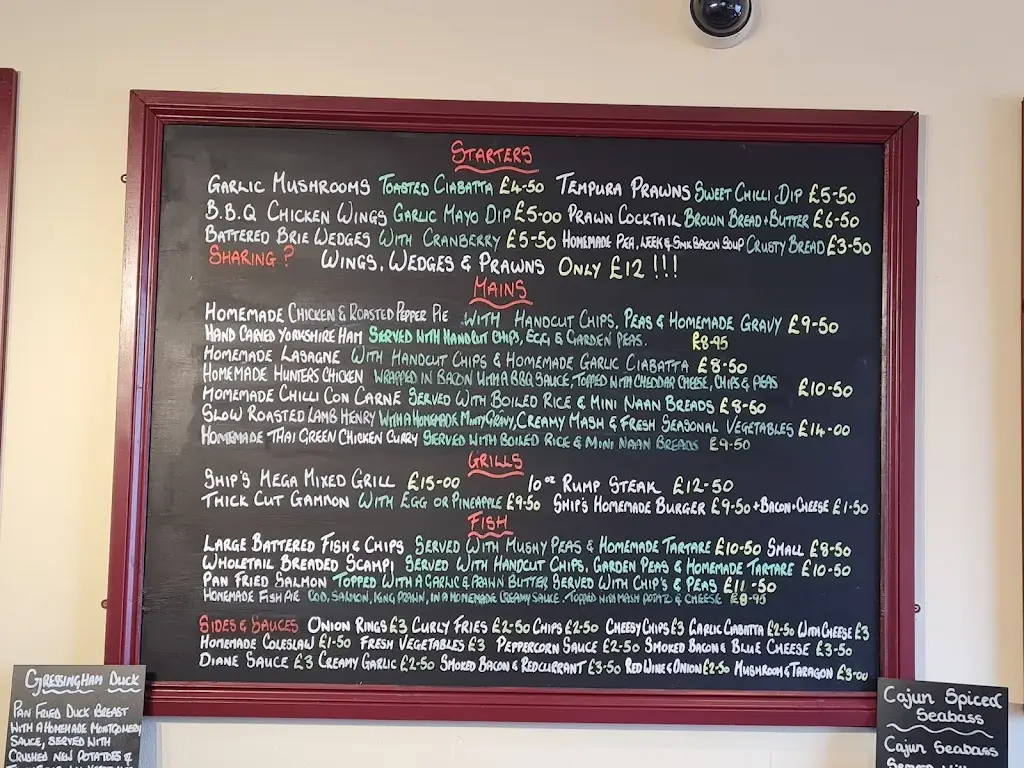 STARTERS
GARLIC MUSHROOMS TOASTED CIABATTA £4-50 TEMPURA PRAWNS SWEET CHILLI DIP £5-50
B.B.Q CHICKEN WINGS GARLIC MAYO DIP £5-00 PRAWN COCKTAIL BROWN BREAD + BUTTER £6-50
BATTERED BRIE WEDGES WITH CRANBERRY £5-50 HOMEMADE PEA, LEEK & SMK BACON SOUP CRUSTY BREAD £3-50
SHARING? WINGS, WEDGES & PRAWNS ONLY £12 !!!
MAINS
HOMEMADE CHICKEN & ROASTED PEPPER PIE WITH HANDCUT CHIPS, PEAS & HOMEMADE GRAVY £9-50
HAND CARVED YORKSHIRE HAM SERVED WITH HANDCUT CHIPS, EGG & GARDEN PEAS. £8-95
HOMEMADE LASAGNE WITH HANDCUT CHIPS & HOMEMADE GARLIC CIABATTA £8-50
HOMEMADE HUNTERS CHICKEN WRAPPED IN BACON WITH A BBQ SAUCE, TOPPED WITH CHEDDAR CHEESE, CHIPS & PEAS £10-50
HOMEMADE CHILLI CON CARNE SERVED WITH BOILED RICE & MINI NAAN BREADS £8-50
SLOW ROASTED LAMB HENRY WITH A HOMEMADE MINTY GRAVY, CREAMY MASH & FRESH SEASONAL VEGETABLES £14-00
HOMEMADE THAI GREEN CHICKEN CURRY SERVED WITH BOILED RICE & MINI NAAN BREADS £9-50
GRILLS
SHIP'S MEGA MIXED GRILL £15-00 10oz RUMP STEAK £12-50
THICK CUT GAMMON WITH EGG OR PINEAPPLE £9-50 SHIP'S HOMEMADE BURGER £9-50 + BACON + CHEESE £1-50
FISH
LARGE BATTERED FISH & CHIPS SERVED WITH MUSHY PEAS & HOMEMADE TARTARE £10-50 SMALL £8-50
WHOLETAIL BREADED SCAMPI SERVED WITH HANDCUT CHIPS, GARDEN PEAS & HOMEMADE TARTARE £10-50
PAN FRIED SALMON TOPPED WITH A GARLIC & PRAWN BUTTER SERVED WITH CHIP'S & PEAS £11-50
HOMEMADE FISH PIE COD, SALMON, KING PRAWN, IN A HOMEMADE CREAMY SAUCE. TOPPED WITH MASH POTATO & CHEESE £8-95
SIDES & SAUCES ONION RINGS £3 CURLY FRIES £2-50 CHIPS £2-50 CHEESY CHIPS £3 GARLIC CIABATTA £2-50 WITH CHEESE £3
HOMEMADE COLESLAW £1-50 FRESH VEGETABLES £3 PEPPERCORN SAUCE £2-50 SMOKED BACON & BLUE CHEESE £3-50
DIANE SAUCE £3 CREAMY GARLIC £2-50 SMOKED BACON & REDCURRANT £3-50 RED WINE & ONION £2-50 MUSHROOM & TARAGON £3-00
GRESSINGHAM DUCK
PAN FRIED DUCK BREAST
WITH A HOMEMADE MONTGOMERY
SAUCE, SERVED WITH
CRUSHED NEW POTATOES &
Cajun Spiced
Seabass
Cajun Seabass